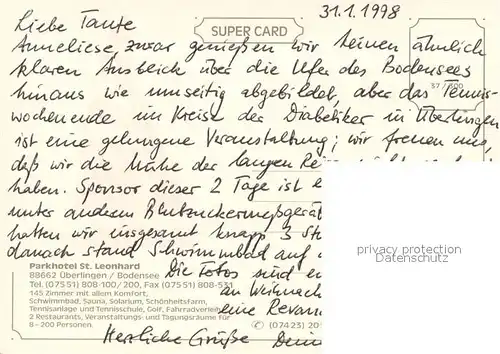 31.1.1998
Liebe Tante
SUPER CARD
Anneliese, zwar genießen wir keinen ähnlich
klaren Ausblick über die Ufer des Bodensees
37/200
hinaus wie umseitig abgebildet, aber das Tennis-
wochenende im Kreise der Diabetiker in Überlingen
ist eine gelungene Veranstaltung; wir freuen uns,
daß wir die Mühe der langen
haben. Sponsor dieser 2 Tage ist
unter anderem Blutzuckermeßgerät
hatten wir insgesamt knapp 3
danach stand Schwimmbad auf
privacy protection
Datenschutz
Parkhotel St. Leonhard
Die Fotos sind
88662 Überlingen / Bodensee
Tel. (07551) 808-100/200, Fax (07551) 808-531
an Weihnach
145 Zimmer mit allem Komfort,
Schwimmbad, Sauna, Solarium, Schönheitsfarm,
Tennisanlage und Tennisschule, Golf, Fahrradverleih
eine Revan
2 Restaurants, Veranstaltungs- und Tagungsräume für
8-200 Personen.
(07423) 20
Herzliche Grüße Dein